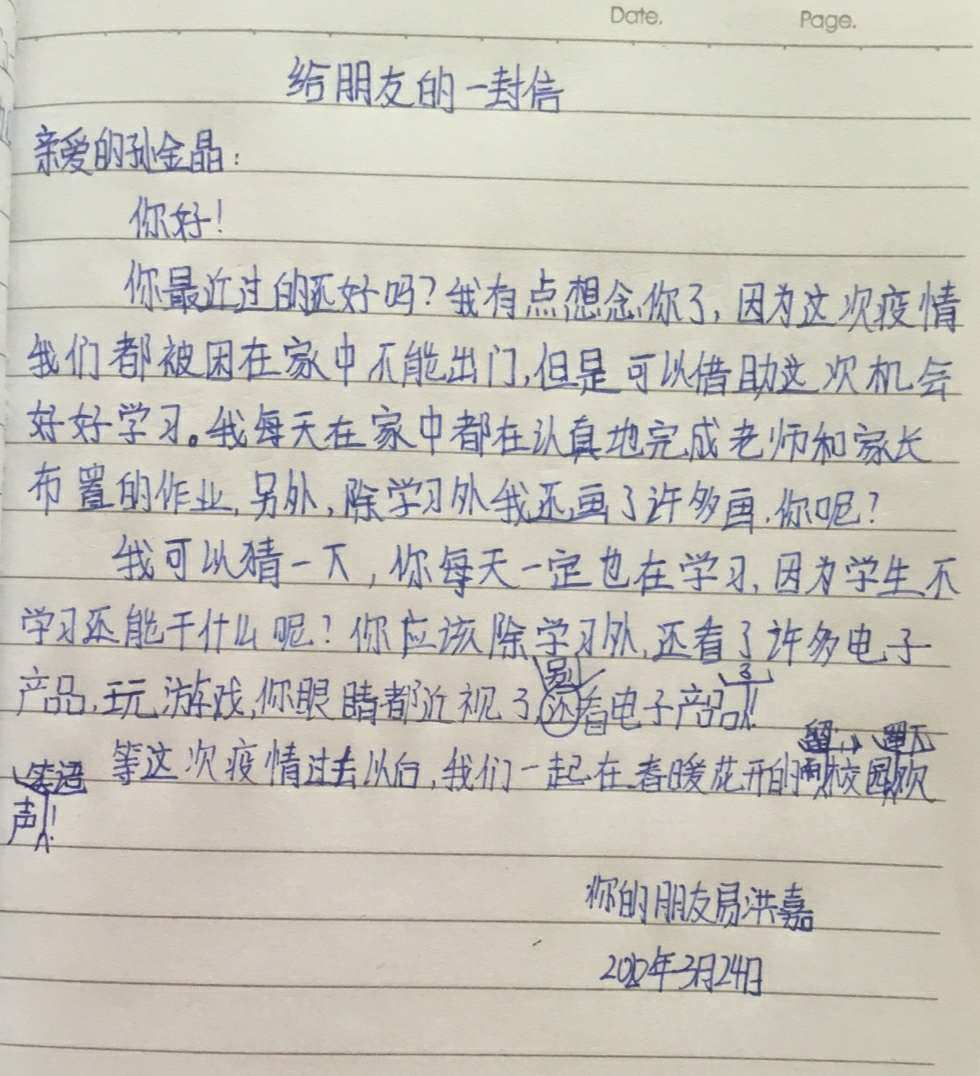 Date. Page.
给朋友的一封信
亲爱的孙金晶：
你好！
你最近过的还好吗？我有点想念你了，因为这次疫情
我们都被困在家中不能出门，但是可以借助这次机会
好好学习。我每天在家中都在认真地完成老师和家长
布置的作业，另外，除学习外我还画了许多画，你呢？
我可以猜一下，你每天一定也在学习，因为学生不
学习还能干什么呢？你应该除学习外，还看了许多电子
产品，玩游戏，你眼睛都近视了，别看电子产品了！
等这次疫情过去以后，我们一起在春暖花开的校园留下欢
声笑语！
你的朋友易洪嘉
2020年3月24日